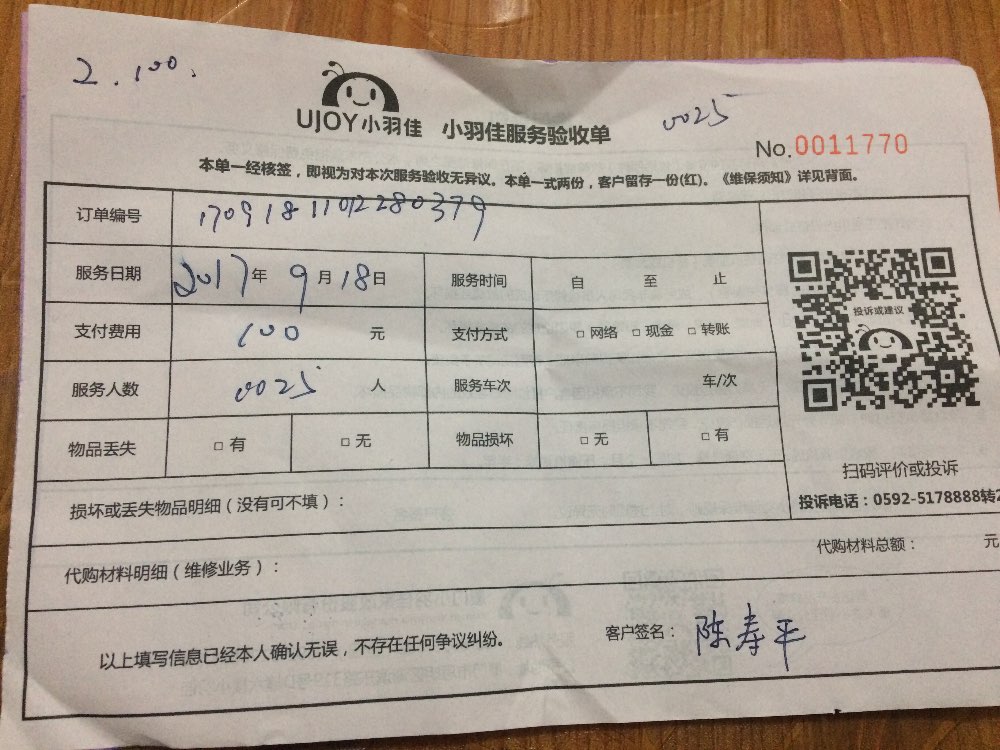 2.100.
UJOY小羽佳 小羽佳服务验收单
0025
No.0011770
本单一经核签，即视为对本次服务验收无异议。本单一式两份，客户留存一份(红)。《维保须知》详见背面。
订单编号 17091811012280379
服务日期 2017年 9月18日 服务时间 自 至 止
支付费用 100 元 支付方式 □ 网络 □ 现金 □ 转账
投诉或建议
服务人数 0025 人 服务车次 车/次
物品丢失 □ 有 □ 无 物品损坏 □ 无 □ 有
扫码评价或投诉
损坏或丢失物品明细（没有可不填）：
投诉电话：0592-5178888转2
代购材料明细（维修业务）：
代购材料总额： 元
以上填写信息已经本人确认无误，不存在任何争议纠纷。
客户签名：陈寿平